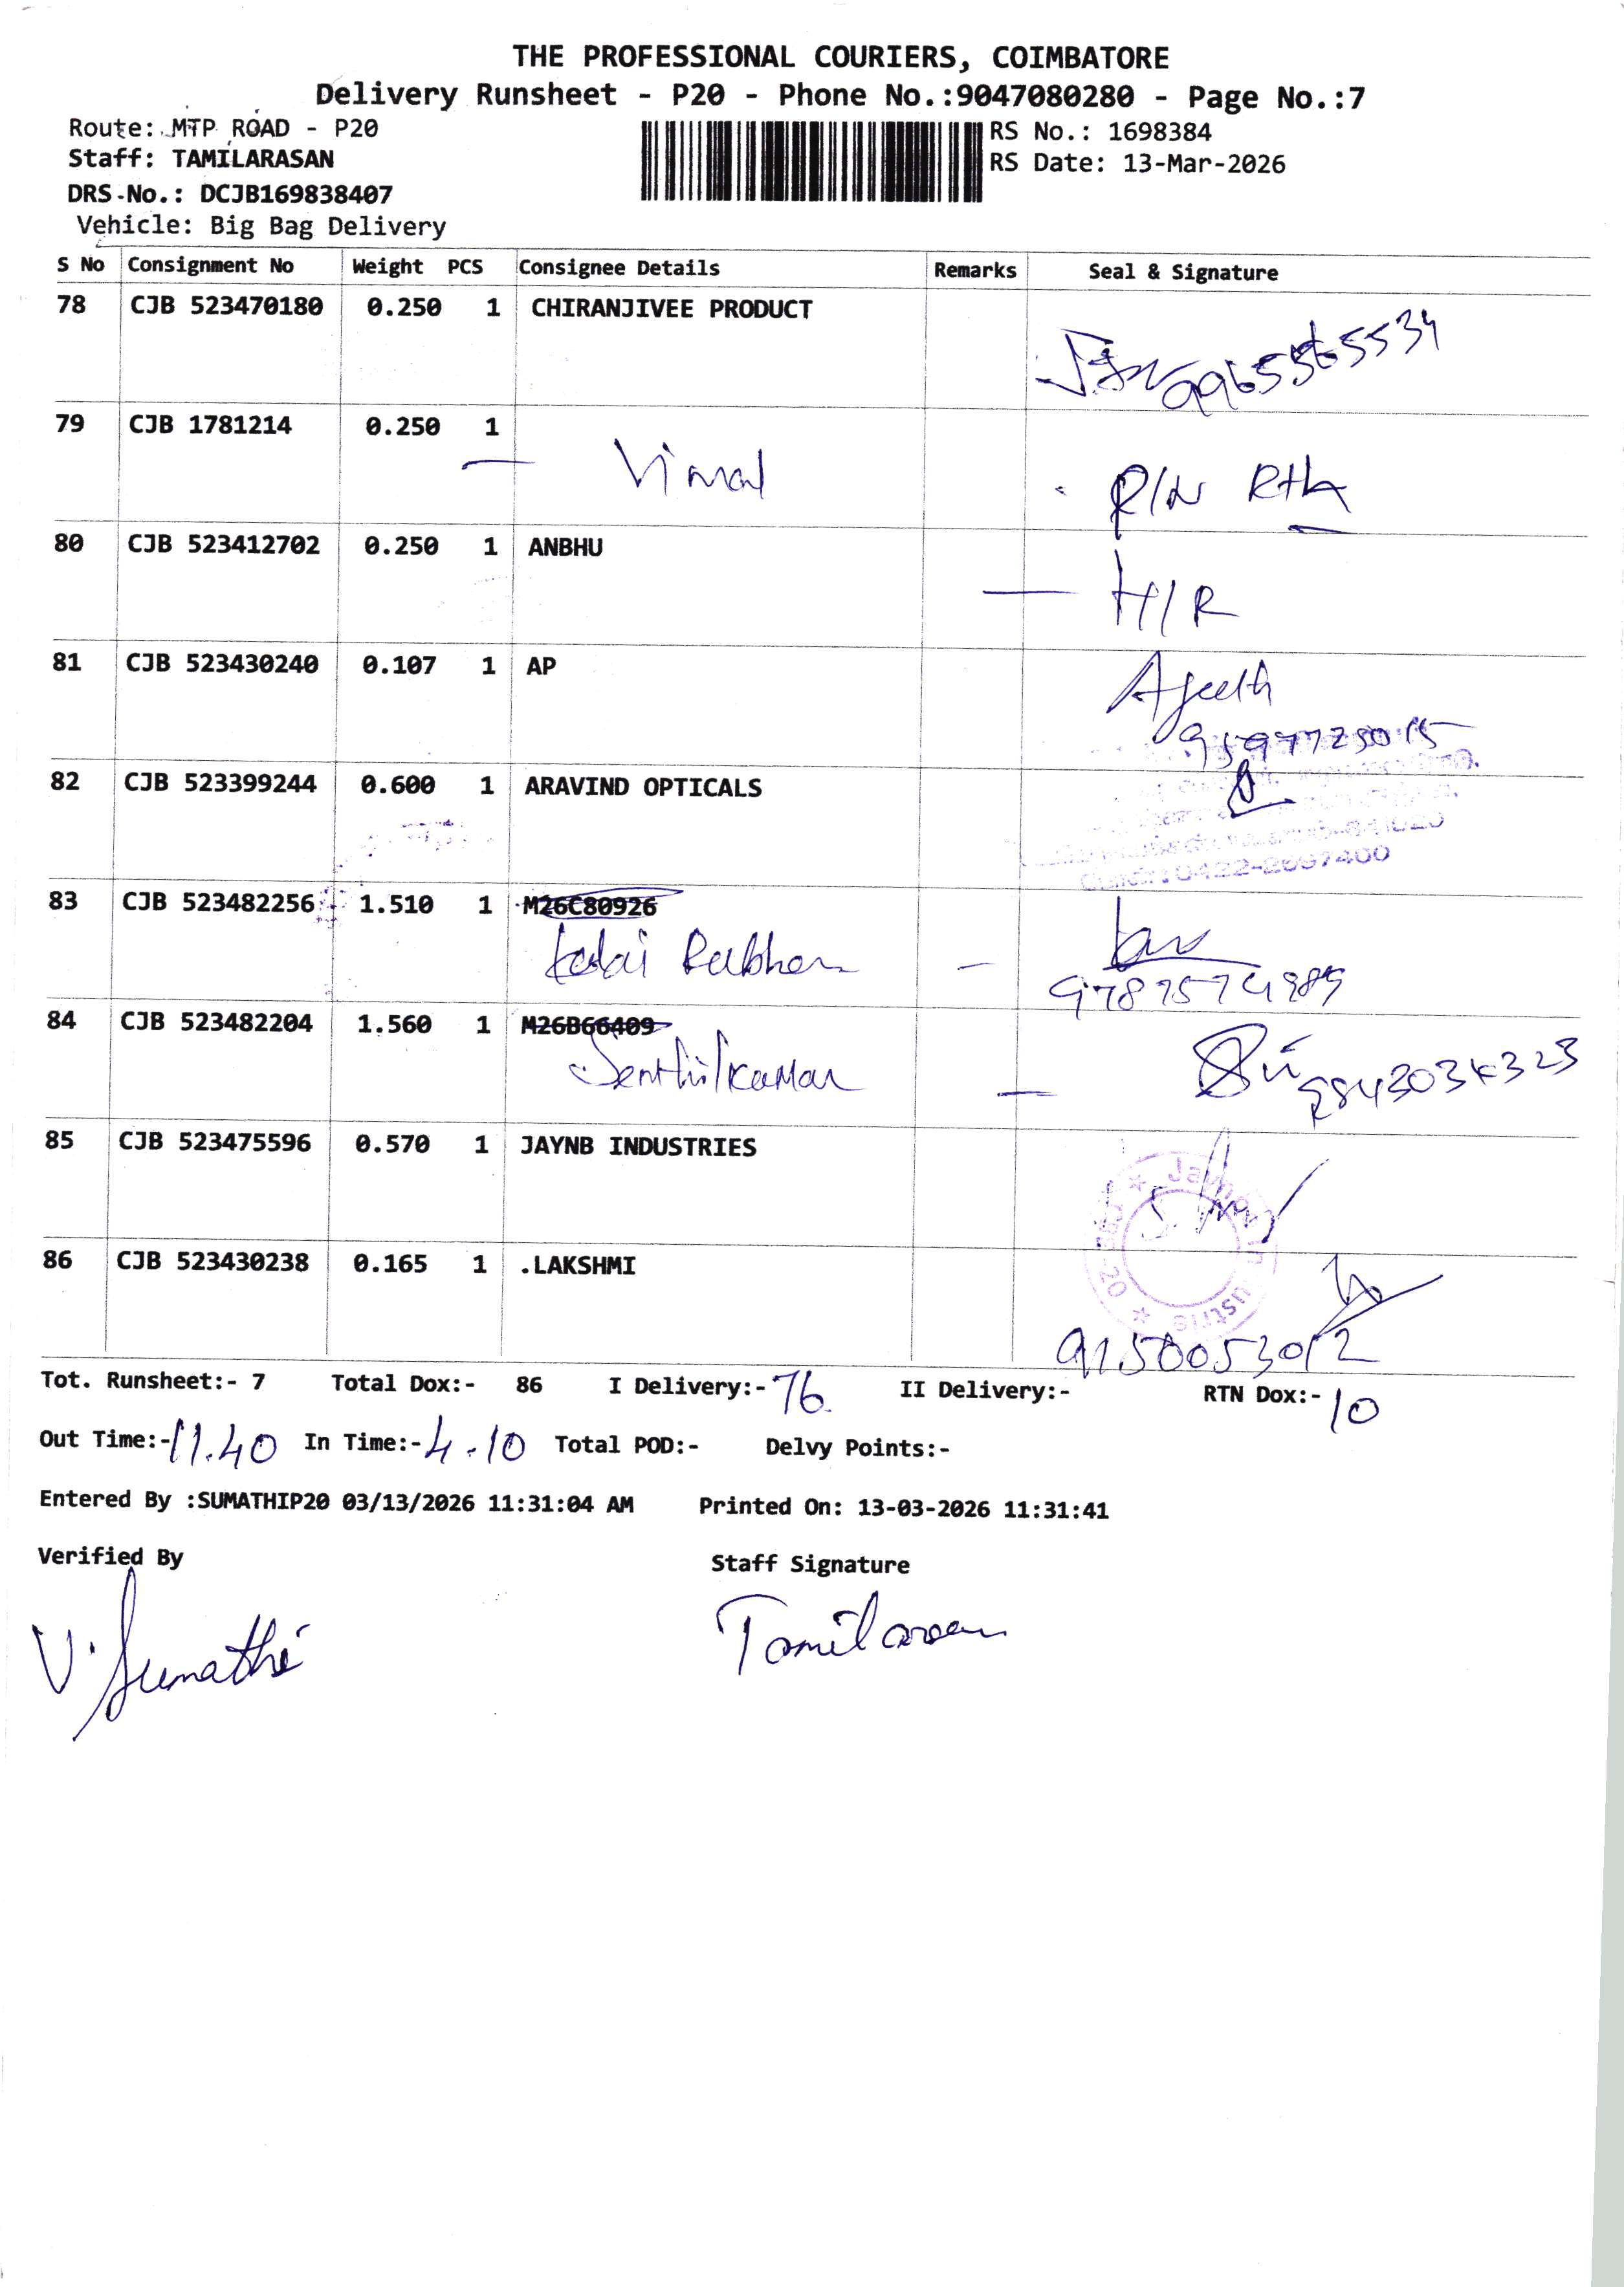 THE PROFESSIONAL COURIERS, COIMBATORE
Delivery Runsheet - P20 - Phone No.:9047080280 - Page No.:7
Route: MTP ROAD - P20
RS No.: 1698384
Staff: TAMILARASAN
RS Date: 13-Mar-2026
DRS-No.: DCJB169838407
Vehicle: Big Bag Delivery
S No Consignment No Weight PCS Consignee Details Remarks Seal & Signature
78 CJB 523470180 0.250 1 CHIRANJIVEE PRODUCT
79 CJB 1781214 0.250 1
Vimal
80 CJB 523412702 0.250 1 ANBHU
H/R
81 CJB 523430240 0.107 1 AP
Ajeeth
82 CJB 523399244 0.600 1 ARAVIND OPTICALS
0422-2697400
83 CJB 523482256 1.510 1 M26C80926
84 CJB 523482204 1.560 1 M26B66409
Senthilkumar
85 CJB 523475596 0.570 1 JAYNB INDUSTRIES
86 CJB 523430238 0.165 1 .LAKSHMI
9150053012
Tot. Runsheet:- 7 Total Dox:- 86 I Delivery:- 76 II Delivery:- RTN Dox:- 10
Out Time:- 11.40 In Time:- 4.10 Total POD:- Delvy Points:-
Entered By :SUMATHIP20 03/13/2026 11:31:04 AM Printed On: 13-03-2026 11:31:41
Verified By Staff Signature
V. Sumathi Tamilarasan